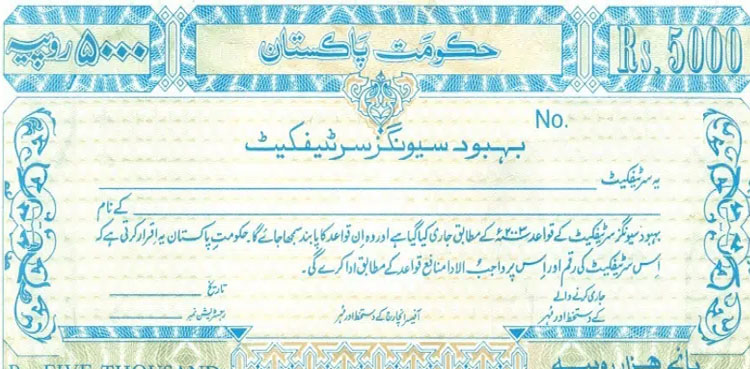 ۵۰۰۰ روپیہ حکومت پاکستان Rs. 5000
No.
بہبود سیونگز سرٹیفکیٹ
یہ سرٹیفکیٹ
کے نام
بہبود سیونگز سرٹیفکیٹ کے قواعد ۲۰۰۳ء کے مطابق جاری کیا گیا ہے اور وہ اِن قواعد کا پابند سمجھا جائے گا۔ حکومتِ پاکستان یہ اقرار کرتی ہے کہ
اِس سرٹیفکیٹ کی رقم اور اِس پر واجب الادا منافع قواعد کے مطابق ادا کرے گی۔
جاری کرنے والے تاریخ
کے دستخط اور مُہر آفیسر انچارج کے دستخط اور مُہر رجسٹریشن نمبر
Rs. FIVE THOUSAND پانچ ہزار روپیہ